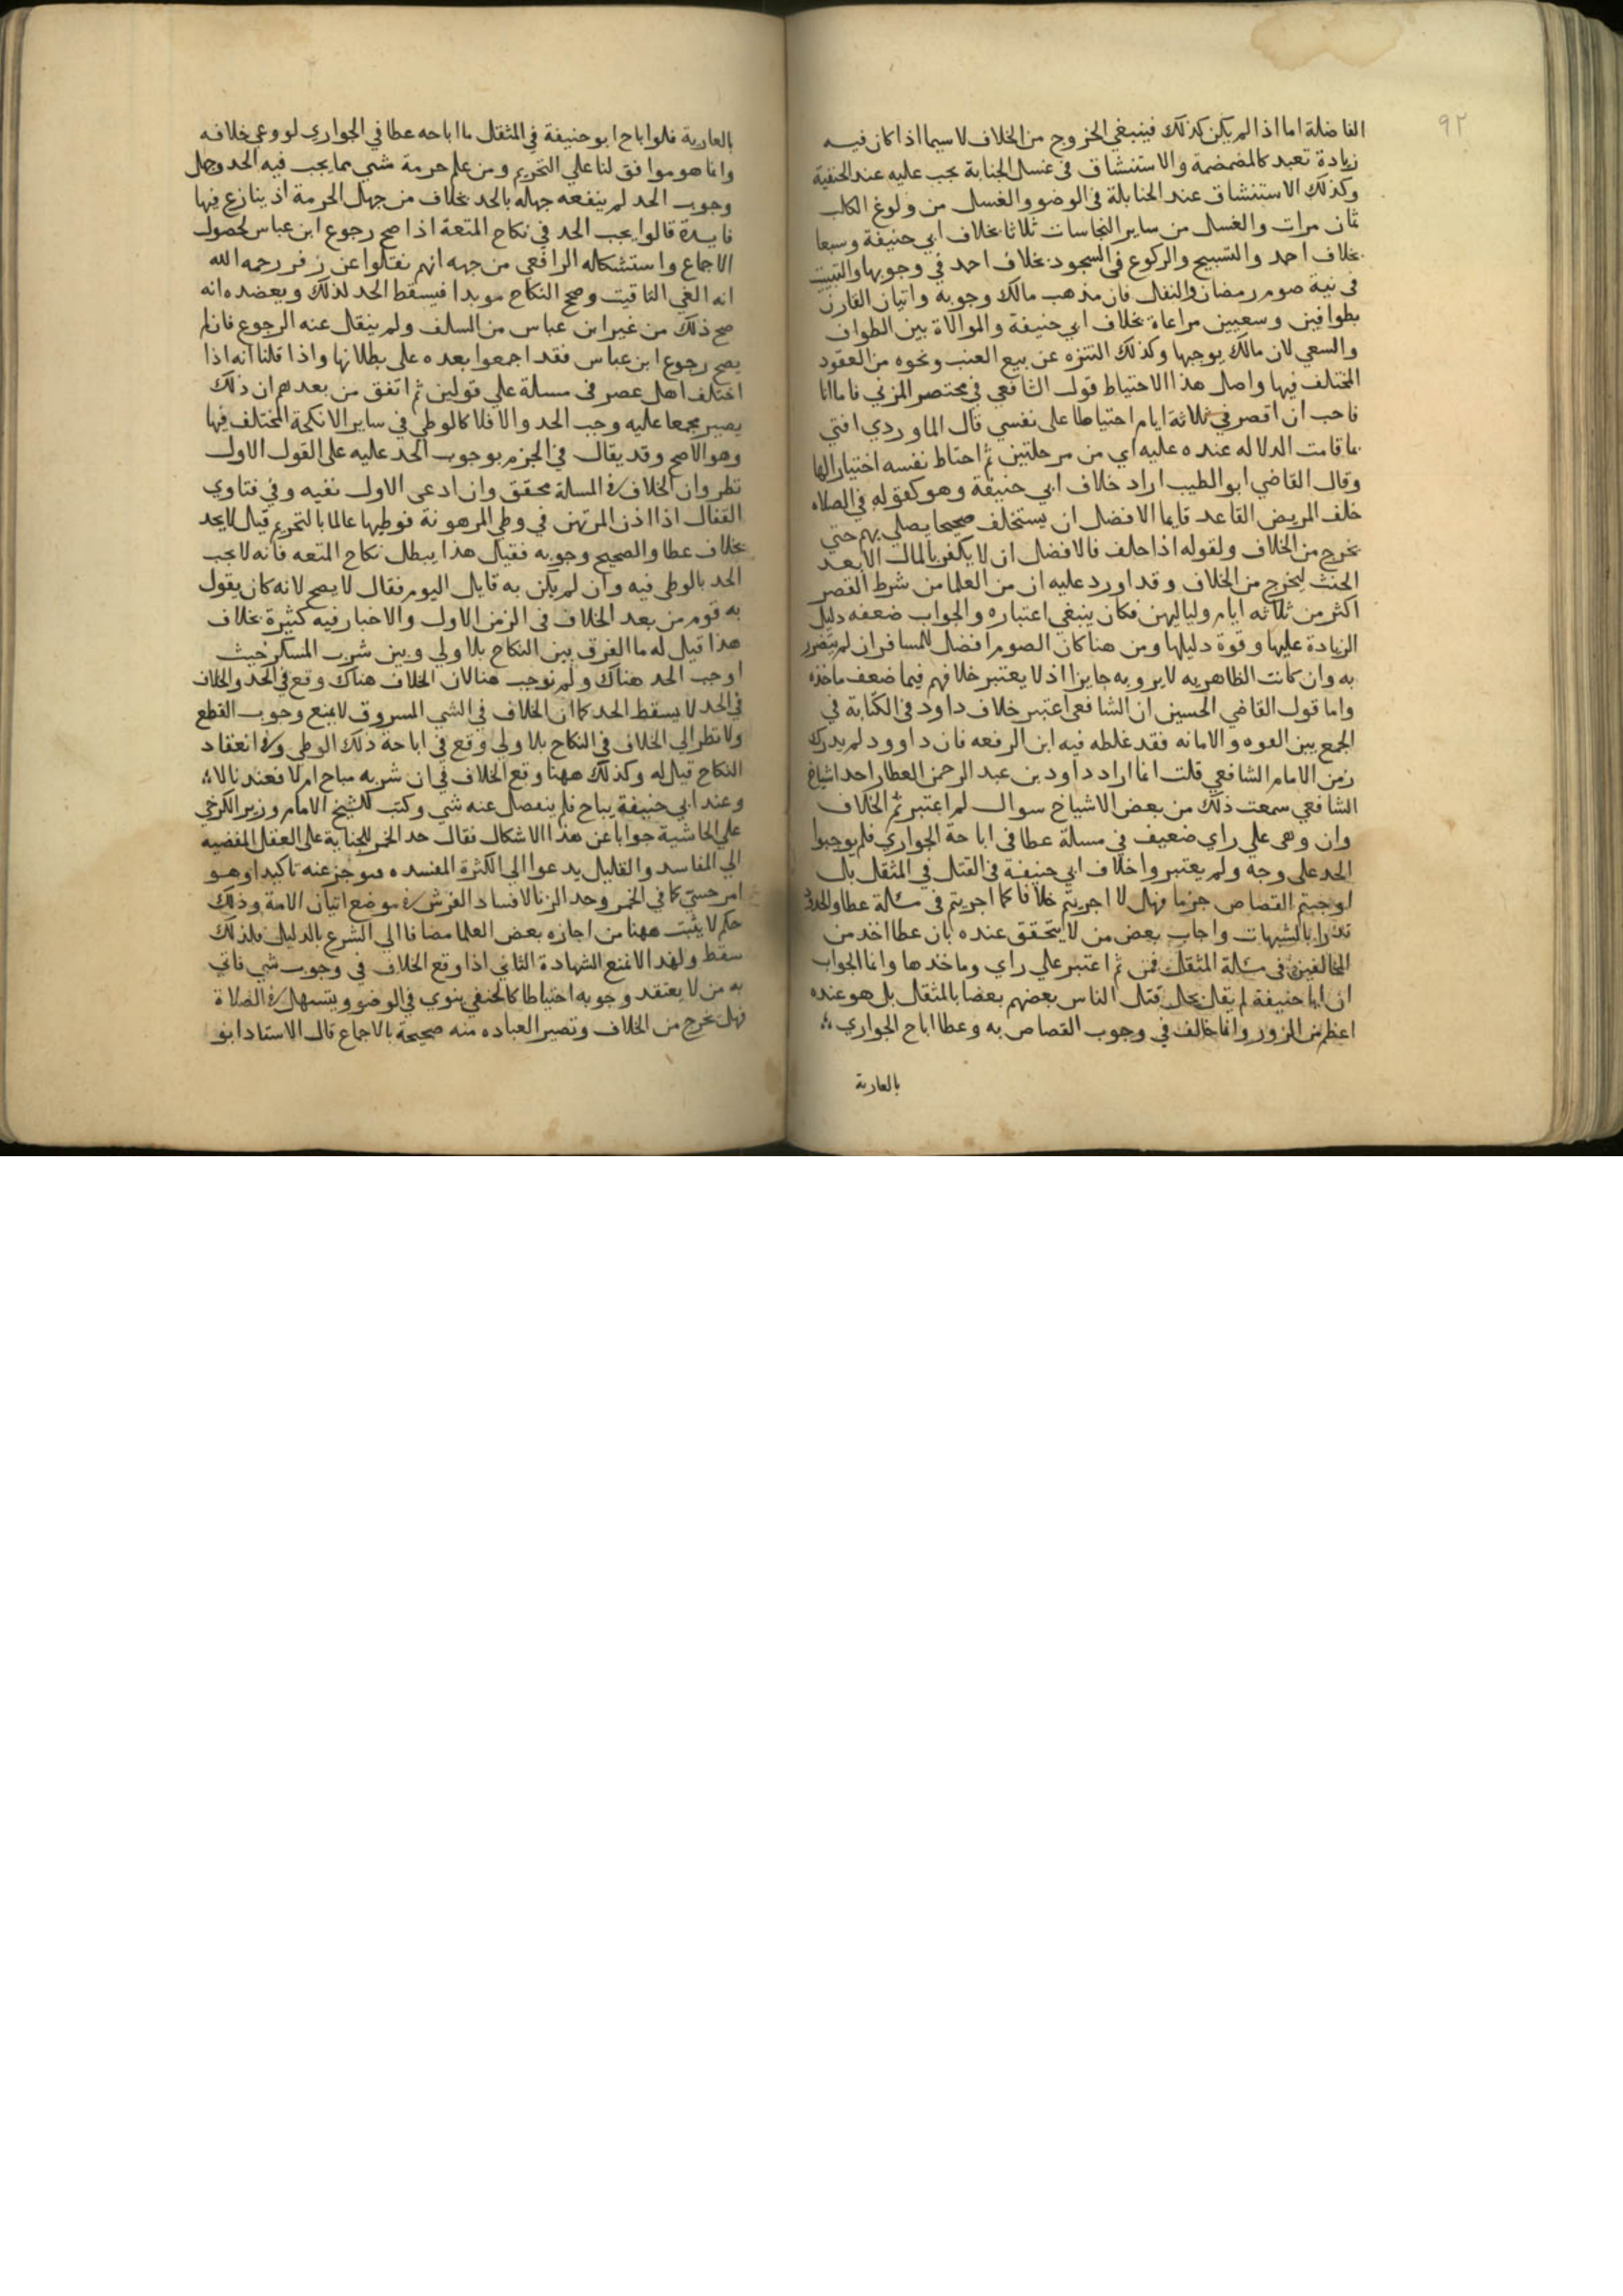 ٩٢
الفاضلة اما اذا لم يكن كذلك فينبغي الخروج من الخلاف لا سيما اذا كان فيه
زيادة تعبد كالمضمضة والاستنشاق في غسل الجنابة يجب عليه عند الحنفية
وكذلك الاستنشاق عند الحنابلة في الوضو والغسل من ولوغ الكلب
ثمان مرات والغسل من ساير النجاسات ثلاثا بخلاف ابي حنيفة وسبعا
بخلاف احمد والتسبيح والركوع في السجود بخلاف احمد في وجوبها والتبييت
في نية صوم رمضان والنفل فان مذهب مالك وجوبه واتيان القارن
بطوافين وسعيين مراعاة بخلاف ابي حنيفة والموالاة بين الطواف
والسعي لان مالك يوجبها وكذلك التنزه عن بيع العنب ونحوه من العقود
المختلف فيها واصل هذا الاحتياط قول الشافعي في مختصر المزني فاما انا
فاحب ان اقصر في ثلاثة ايام احتياطا على نفسي قال الماوردي افتي
بما قامت الدلاله عنده عليه اي من مرحلتين ثم احتاط نفسه اختيارا لها
وقال القاضي ابو الطيب اراد خلاف ابي حنيفة وهو كقوله في الصلاه
خلف المريض القاعد قايما الافضل ان يستخلف صحيحا يصلي بهم حتي
يخرج من الخلاف ولقوله اذا حلف فالافضل ان لا يكفر بالمال الا بعد
الحنث ليخرج من الخلاف وقد اورد عليه ان من العلما من شرط القصر
اكثر من ثلاثه ايام ولياليهن فكان ينبغي اعتباره والجواب ضعفه دليل
الزيادة عليها وقوة دليلها ومن هنا كان الصوم افضل للمسافر ان لم يتضرر
به وان كانت الظاهريه لا يرو به جايزا اذ لا يعتبر خلافهم فيما ضعف ماخذه
واما قول القاضي الحسين ان الشافعي اعتبر خلاف داود في الكتابة في
الجمع بين القوه والامانه فقد غلطه فيه ابن الرفعه فان داوود لم يدرك
زمن الامام الشافعي قلت انما اراد داود بن عبد الرحمن العطار احد اشياخ
الشافعي سمعت ذلك من بعض الاشياخ سوال لم اعتبر ثم الخلاف
وان وهى علي راي ضعيف في مسالة عطا في اباحة الجواري فلم يوجبوا
الحد على وجه ولم يعتبروا خلاف ابي حنيفة في القتل في المثقل بل
اوجبتم القصاص جزما فهل لا اجريتم خلافا كما اجريتم في مسالة عطا والحدود
تدرا بالشبهات واجاب بعض من لا يتحقق عنده بان عطا اخذ من
المخالفين في مسالة المثقل فمن ثم اعتبر علي راي وماخذها وانما الجواب
ان ابا حنيفة لم يقل بحل قتل الناس بعضهم بعضا بالمثقل بل هو عنده
اعظم من المزور وانما خالف في وجوب القصاص به وعطا اباح الجواري
بالعارية
بالعارية فلو اباح ابو حنيفة في المثقل ما اباحه عطا في الجواري لو وعي خلافه
وانما هو موافق لنا علي التحريم ومن علم حرمة شي مما يجب فيه الحد وجهل
وجوب الحد لم ينفعه جهله بالحد بخلاف من جهل الحرمة اذ ينازع فيها
فايدة قالوا يجب الحد في نكاح المتعة اذا صح رجوع ابن عباس لحصول
الاجماع واستشكله الرافعي من جهه انهم نقلوا عن زفر رحمه الله
انه الغي التاقيت وصحح النكاح موبدا فيسقط الحد لذلك ويعضده انه
صح ذلك من غير ابن عباس من السلف ولم ينقل عنه الرجوع فان لم
يصح رجوع ابن عباس فقد اجمعوا بعده على بطلانها واذا قلنا انه اذا
اختلف اهل عصر في مسلة علي قولين ثم اتفق من بعدهم ان ذلك
يصير مجمعا عليه وجب الحد والا فلا كالوطي في ساير الانكحة المختلف فيها
وهو الاصح وقد يقال في الجزم بوجوب الحد عليه على القول الاول
نظر وان الخلاف في المسلة محقق وان ادعى الاول نفيه وفي فتاوي
القفال اذا اذن المرتهن في وطي المرهونة فوطيها عالما بالتحريم قيل لا يحد
بخلاف عطا والصحيح وجوبه فقيل هذا يبطل نكاح المتعه فانه لا يجب
الحد بالوطي فيه وان لم يكن به قايل اليوم فقال لا يصح لانه كان يقول
به قوم من بعد الخلاف في الزمن الاول والاخبار فيه كثيرة بخلاف
هذا قيل له ما الفرق بين النكاح بلا ولي وبين شرب المسكر حيث
اوجب الحد هناك ولم نوجب هنا لان الخلاف هناك وقع في الحد والخلاف
في الحد لا يسقط الحد كما ان الخلاف في الشي المسروق لا يمنع وجوب القطع
ولا نظر الي الخلاف في النكاح بلا ولي وقع في اباحة ذلك الوطي وفي انعقاد
النكاح قيل له وكذلك ههنا وقع الخلاف في ان شربه مباح ام لا فعندنا لا
وعند ابي حنيفة يباح فلم ينفصل عنه شي وكتب للشيخ الامام وزير الكرخي
علي الحاشية جوابا عن هذا الاشكال فقال حد الخمر للجناية على العقل المفضيه
الي المفاسد والقليل يدعوا الي الكثرة المفسده عنه تاكيدا وهو
امر حسيّ كما في الخمر وحد الزنا لافساد الفرش في موضع اتيان الامة وذلك
حكم لا يثبت ههنا من اجازه بعض العلما مضافا الي الشرع بالدليل فلذلك
سقط ولهذا لا تمنع الشهادة الثاني اذا وقع الخلاف في وجوب شي فاتي
به من لا يعتقد وجوبه احتياطا كالحنفي ينوي في الوضو ويتسهل في الصلاة
فهل يخرج من الخلاف وتصير العباده منه صحيحة بالاجماع قال الاستاد ابو